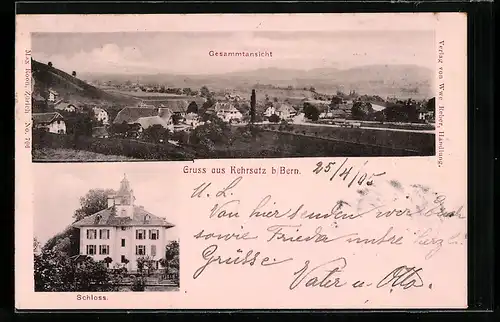 Gesammtansicht
Max Kooh, Zürich No. 796
Verlag von Wwe Beber, Handlung.
Gruss aus Kehrsatz b/Bern.
25/4/05
U. L.
Von hier senden
sowie Frieda unsre herzl.
Grüsse.
Vater u. Otto.
Schloss.